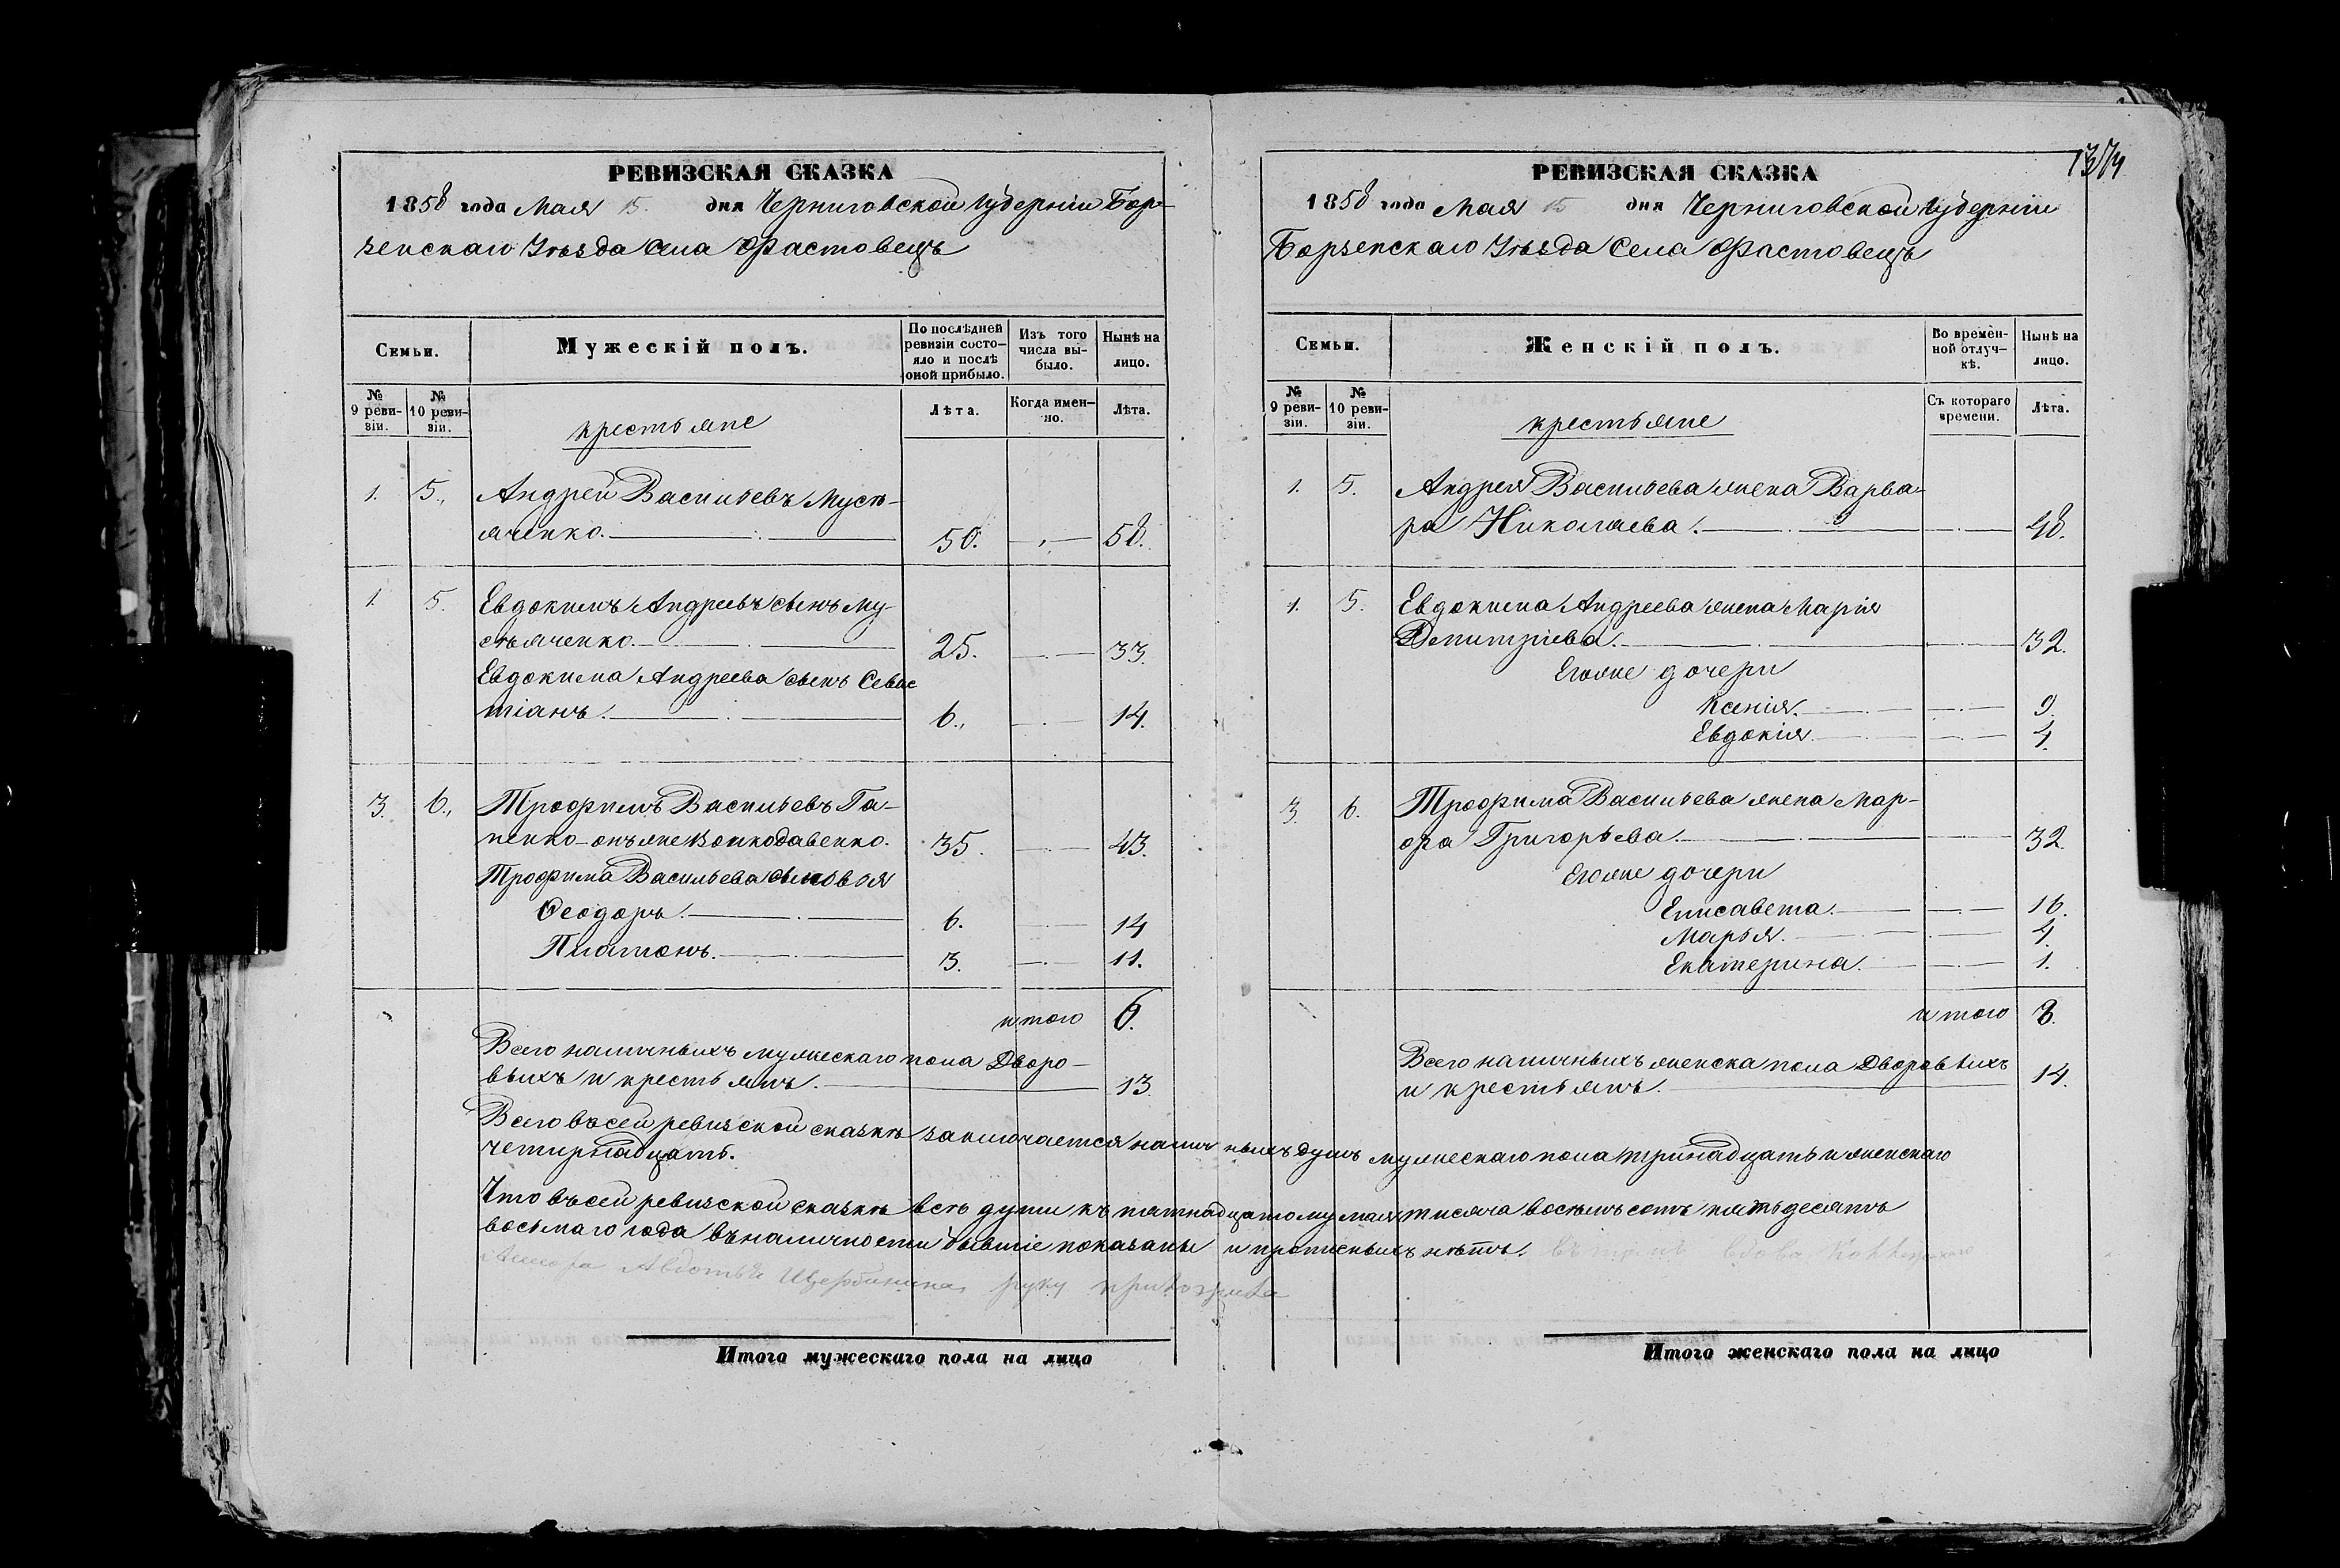 РЕВИЗСКАЯ СКАЗКА
1858 года Мая 15. дня Черниговской Губерніи Бор-
зенскаго Уѣзда Села Фастовецъ
Семьи.
Мужескій полъ.
По послѣдней ревизіи состо-
яло и послѣ оной прибыло.
Изъ того числа вы-
было.
Нынѣ на лицо.
№ 9 реви-
зіи.
№ 10 реви-
зіи.
крестьяне
Лѣта.
Когда имен-
но.
Лѣта.
1. 5. Андрей Васильевъ Мусѣ-
яченко. 50. 58.
1. 5. Евдокимъ Андреевъ сынъ Му-
сѣяченко. 25. 33.
Евдокима Андреева сынъ Севас
тіанъ. 6. 14.
3. 6. Трофимъ Васильевъ Га-
ненко-онъ же
35. 43.
Трофима Васильева сыновья
Феодоръ. 6. 14
Платонъ. 3. 11.
итого 6.
Всего наличныхъ мужескаго пола Дворо-
выхъ и крестьянъ. 13.
РЕВИЗСКАЯ СКАЗКА
1858 года Мая 15 дня Черниговской Губерніи
Борзенскаго Уѣзда Села Фастовецъ
Семьи.
Женскій полъ.
Во времен-
ной отлуч-
кѣ.
Нынѣ на лицо.
№ 9 реви-
зіи.
№ 10 реви-
зіи.
крестьяне
Съ котораго времени.
Лѣта.
1. 5. Андрея Васильева жена Варва-
ра Николаева. 48.
1. 5. Евдокима Андреева жена Марія
Дмитріева. 32.
Егоже дочери
Ксенія. 9.
Евдокія. 4.
3. 6. Трофима Васильева жена Мар-
фа Григорьева. 32.
Егоже дочери
Елисавета. 16.
Марья. 4.
Екатерина. 1.
итого 8.
Всего наличныхъ женска пола Дворовыхъ
и крестьянъ. 14.
Всего въ сей ревизской сказкѣ заключается наличныхъ душъ мужескаго пола тринадцать и женскаго
четырнадцать.
Что въ сей ревизской сказкѣ всѣ души къ пятнадцатому мая тисяча восѣмъ сотъ пятьдесятъ
восьмаго года въ наличности бывшіе показаны и прописныхъ нѣтъ. въ томъ вдова
Авдотья Щербинина руку приложила
Итого мужескаго пола на лицо
Итого женскаго пола на лицо